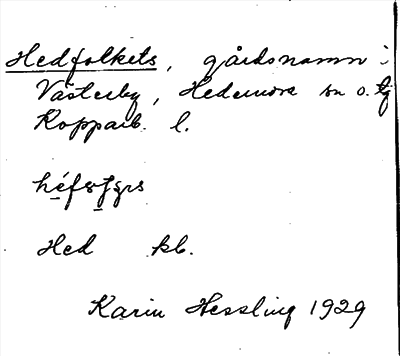 Hedfolkets, gårdsnamn i
Västerby, Hedemora sn o. tg
Kopparb. l.
Hed kb.
Karin Hessling 1929